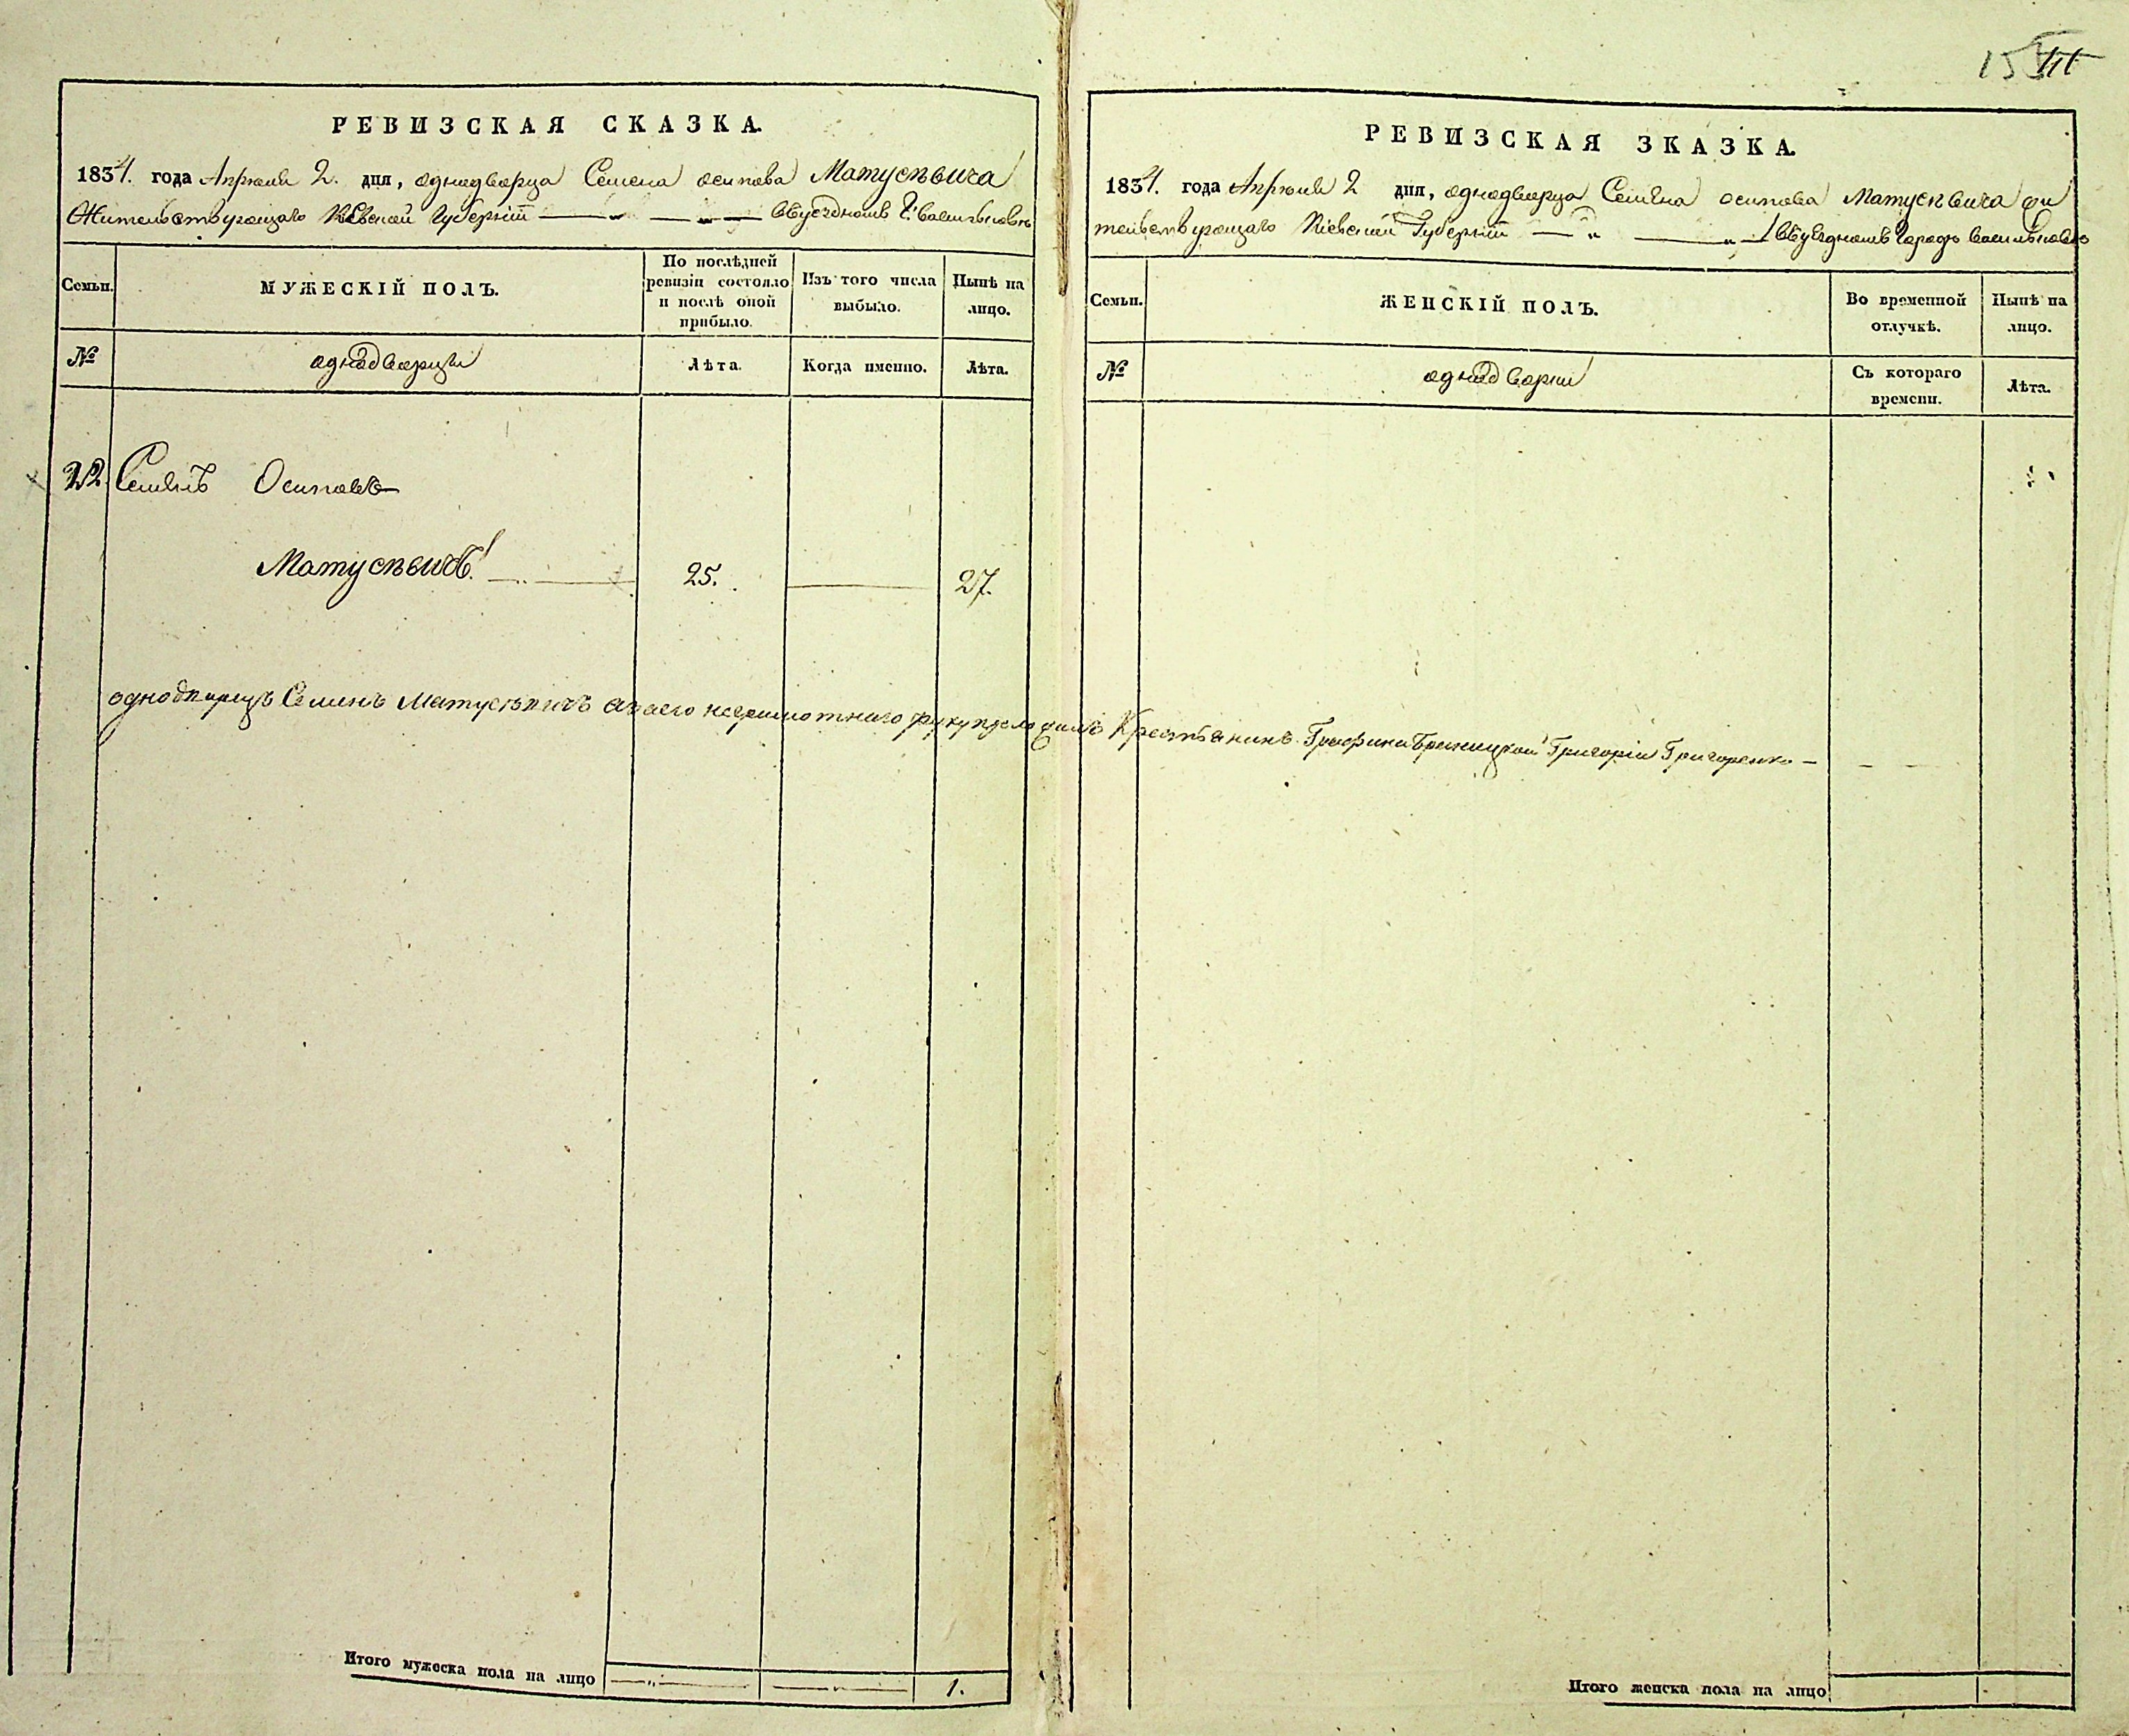 РЕВИЗСКАЯ СКАЗКА.
1834. года Апреля 2. дня, однодворца Семена осипова Матусѣвича
Жительствующаго Кіевской Губерніи — „ — „ — въуездномъ Г. Василькове
Семьи.
МУЖЕСКІЙ ПОЛЪ.
По послѣдней
ревизіи состояло
и послѣ оной
прибыло.
Изъ того числа
выбыло.
Нынѣ на
лицо.
№
однодворцы
Лѣта.
Когда именно.
Лѣта.
22 Семенъ Осиповъ
Матусѣвичъ — 25. — 27.
однодворецъ Семенъ Матусѣвичъ аваего неграмотнаго руку приложилъ Крестьянинъ Графини Браницкой Григорій Григоренко —
Итого мужеска пола на лицо — „ — — „ — 1.
155
РЕВИЗСКАЯ ЗКАЗКА.
1834. года Апреля 2 дня, однодворца Семена осипова Матусѣвича жи
тельствующаго Кіевской Губерніи — „ — „ — въуездномъ Городе Василькове
Семьи.
ЖЕНСКІЙ ПОЛЪ.
Во временной
отлучкѣ.
Нынѣ на
лицо.
№
однодворки
Съ котораго
времени.
Лѣта.
Итого женска пола на лицо